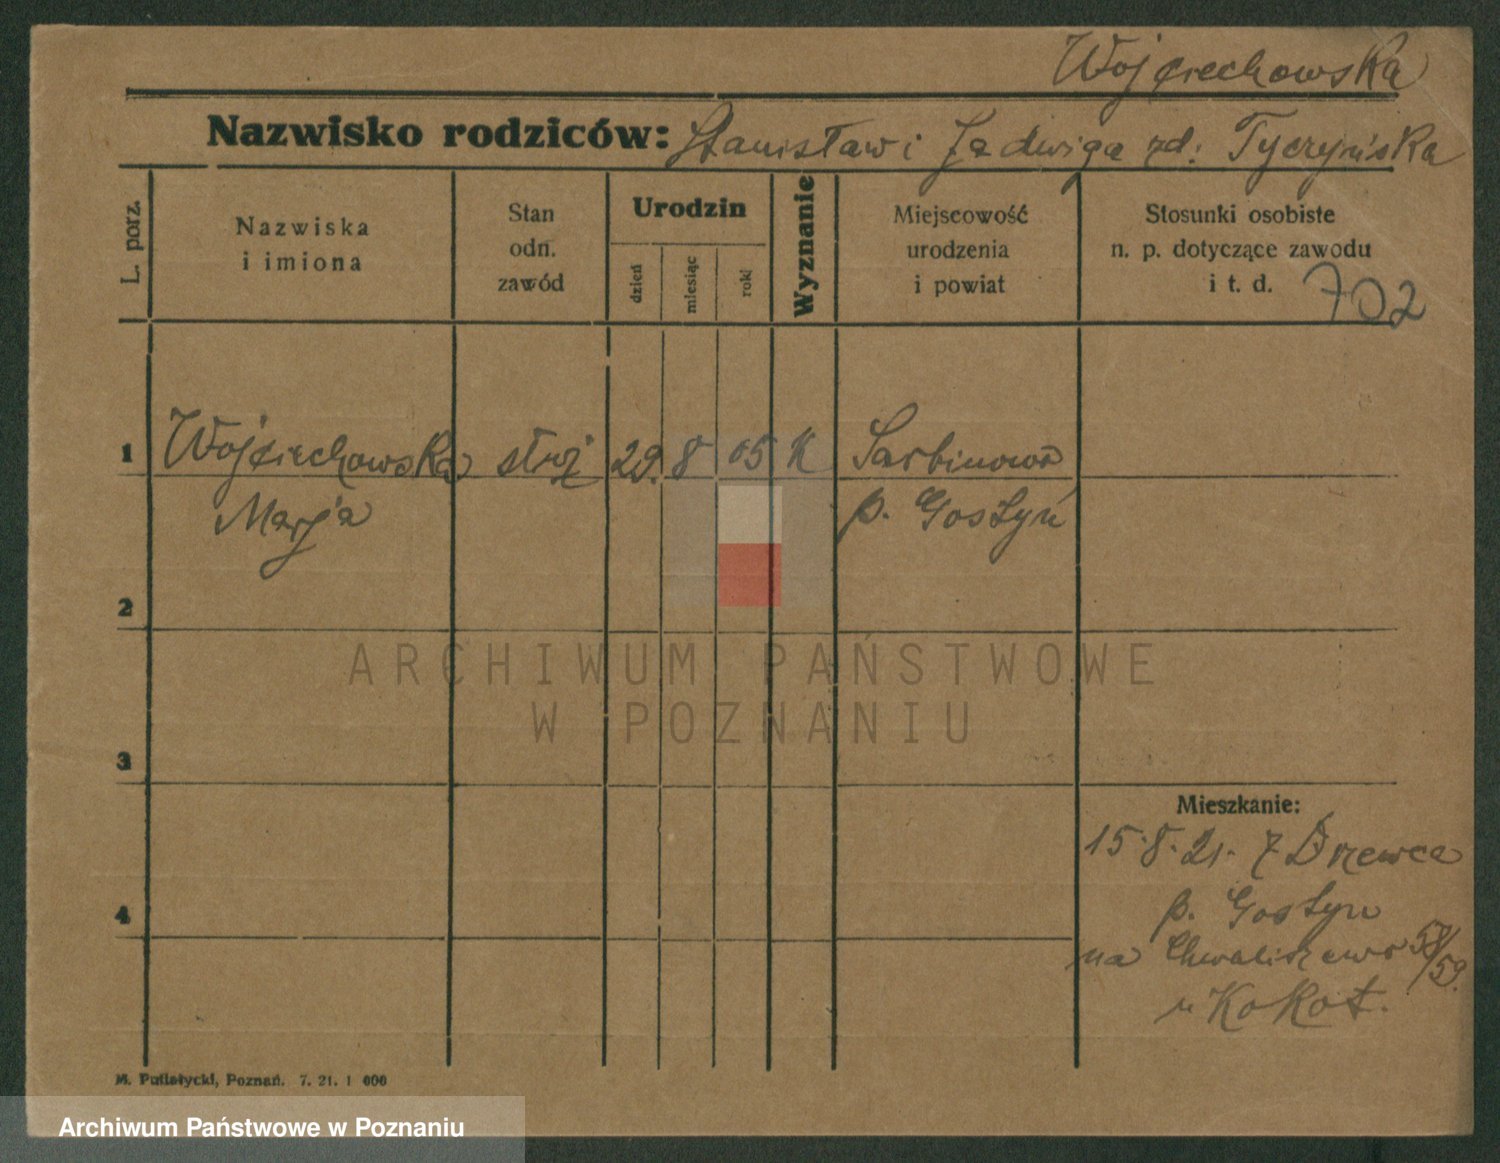 Wojciechowska
Nazwisko rodziców: Stanisław i Jadwiga zd: Tyczyńska
L. porz.
Nazwiska
i imiona
Stan
odn.
zawód
Urodzin
dzień
miesiąc
rok
Wyznanie
Miejscowość
urodzenia
i powiat
Stosunki osobiste
n. p. dotyczące zawodu
i t. d.
702
1 Wojciechowska służ 29. 8 05 K Sarbinowo
Marja p. Gostyń
2
3
4
Mieszkanie:
15.8.21. z Drzewca
p. Gostyn
na Chwaliszewo 58/59.
u Kokot.
M. Putiatycki, Poznań. 7. 21. 1 000
ARCHIWUM PAŃSTWOWE
W POZNANIU
Archiwum Państwowe w Poznaniu